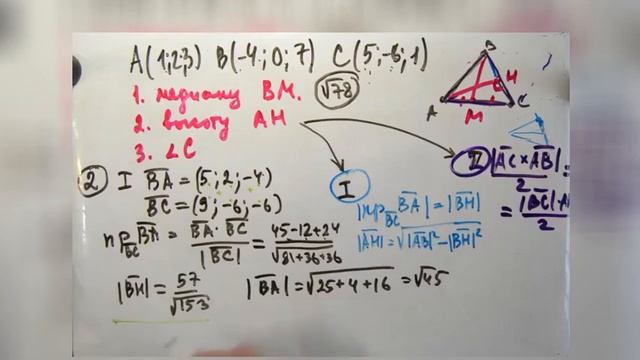 A(1;2;3) B(-4;0;7) C(5;-6;1)
1. медиану BM. √78
2. высоту AH
3. ∠C
B
H
A
M
C
② I BA = (5; 2; -4)
BC = (9; -6; -6)
пр_BC BA = BA · BC / |BC| = 45-12+24 / √81+36+36
|BH| = 57 / √153 |BA| = √25+4+16 = √45
I
|пр_BC BA| = |BH|
|AH| = √|AB|² - |BH|²
II |AC × AB| / 2 =
= |BC| · A / 2